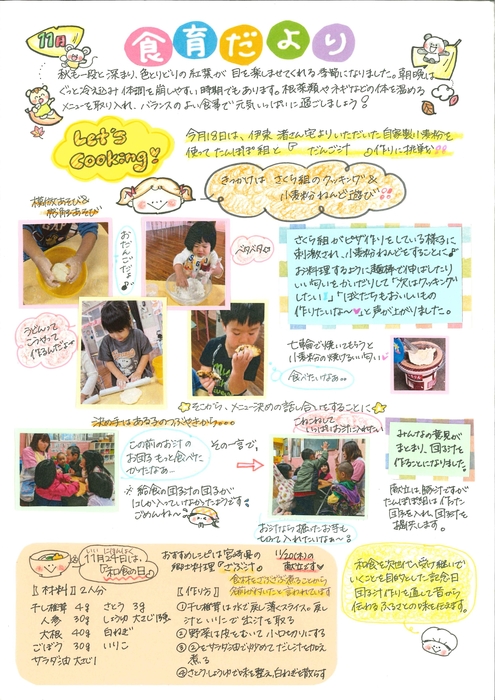 11月
食育だより
秋も一段と深まり、色とりどりの紅葉が目を楽しませてくれる季節になりました。朝晩は
ぐっと冷え込み体調を崩しやすい時期でもあります。根菜類やネギなどの体を温める
メニューを取り入れ、バランスのよい食事で元気いっぱいに過ごしましょう!
Let's
Cooking!
今月18日は、伊東 渚さん宅よりいただいた自家製小麦粉を
使ってたんぽぽ組と『だんご汁』作りに挑戦!!
きっかけは さくら組のクッキング&
小麦粉ねんど遊び!!
おだんごだよ♪
ペタペタ♡
うどんって
こうやって
作るんだよ
さくら組がピザ作りをしている様子に
刺激され、小麦粉ねんどをすることに♪
お料理するように麺棒で伸ばしたり
いい匂いをかいだりして「次はクッキング
したい!」「ぼくたちもおいしいもの
作りたいな〜♥」と声が上がりました。
七輪で焼いてもらうと
小麦粉の焼けるいい匂い
食べたいなぁ…
そこから、メニュー決めの話し合いをすることに
次の手はある子のつぶやきから…
この前のお汁の
お団子もっと食べた
かったなぁ…
その一言で、
※給食の団子汁の団子が
1コしか入っていなかったようです
ごめんね〜
こねこねして
いっぱいお汁に入れたい
お汁なら掘ったお芋も
切って入れたいなぁ〜
みんなの意見が
まとまり、団子汁を
作ることになりました。
献立は、豚汁ですが
たんぽぽ組は作った
団子を入れ、団子汁を
提供します。
11月24日は、
『和食の日』
おすすめレシピは宮崎県の
郷土料理『ざぶ汁』。
11/20(木)の
献立です
食材をざぶざぶ煮ることから
名前が付いたと言われています
【材料】2人分
干し椎茸 4g さとう 3g
人参 30g しょうゆ 大さじ1強
大根 40g 白ねぎ
ごぼう 30g いりこ
サラダ油 大さじ1
【作り方】
①干し椎茸は水で戻し薄くスライス。戻し
汁といりこで出汁を取る
②野菜は皮をむいて小口切りにする
③②をサラダ油で炒めてだし汁を加え
煮る
④さとう・しょうゆで味を整え、白ねぎを散らす
和食を次世代へ受け継いで
いくことを目的とした記念日
団子汁作りを通して昔から
伝わるふるさとの味を伝えます。